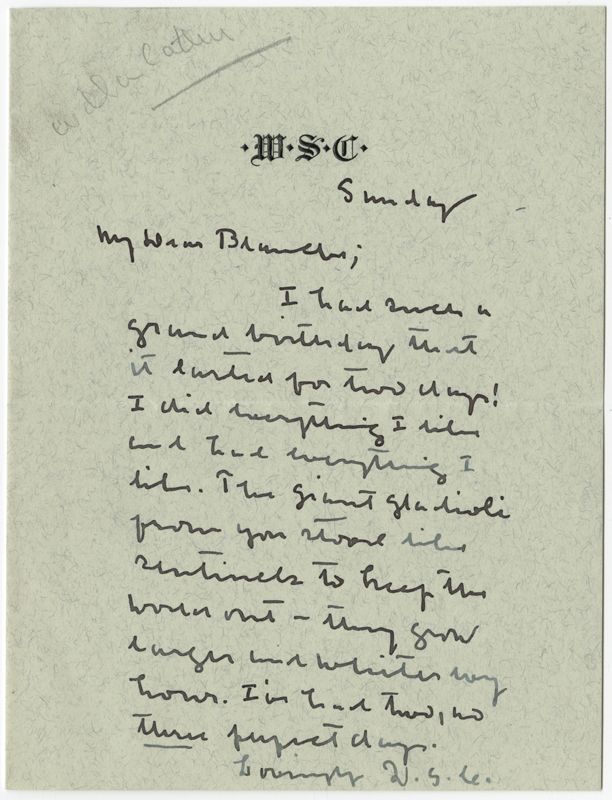 Willa Cather
·W·S·C·
Sunday
My Dear Blanche;
I had such a
grand birthday that
it lasted for two days!
I did everything I like
and had everything I
like. The giant gladioli
from you stood like
sentinels to keep the
world out – they grow
larger and whiter every
hour. I've had two, no
three perfect days.
Lovingly W.S.C.